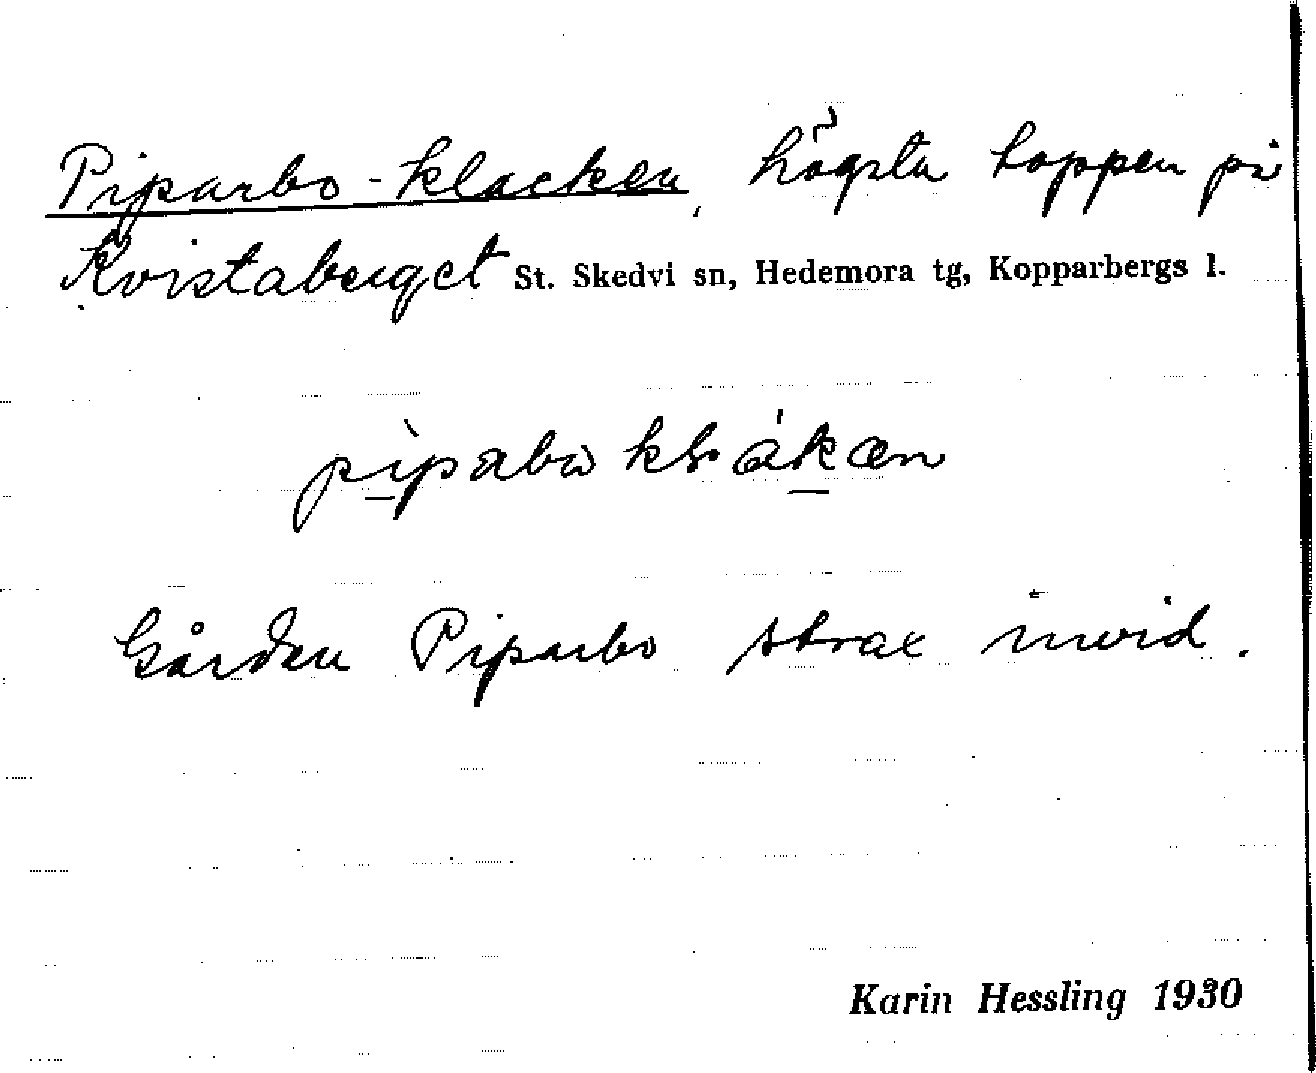 Piparbo-klacken, högsta toppen på
Kvistaberget St. Skedvi sn, Hedemora tg, Kopparbergs l.
Gården Piparbo strax invid.
Karin Hessling 1930